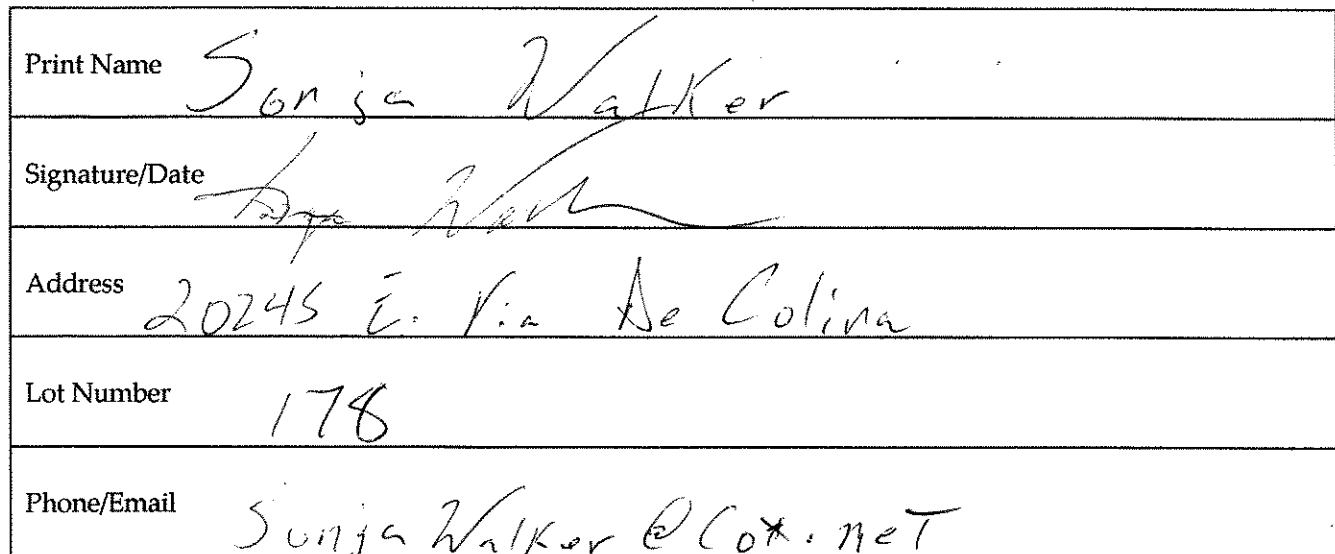 Print Name Sonja Walker
Signature/Date
Address 20245 E. Via De Colina
Lot Number 178
Phone/Email SonjaWalker@Cox.neT